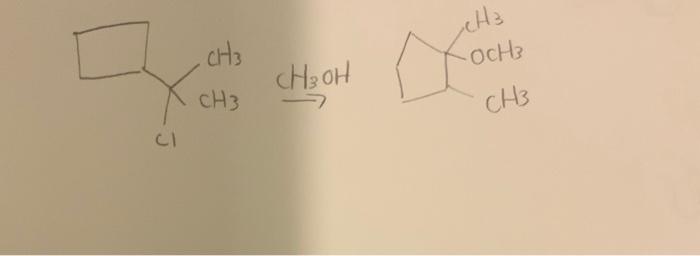 CH3
CH3
Cl
CH3OH
CH3
OCH3
CH3